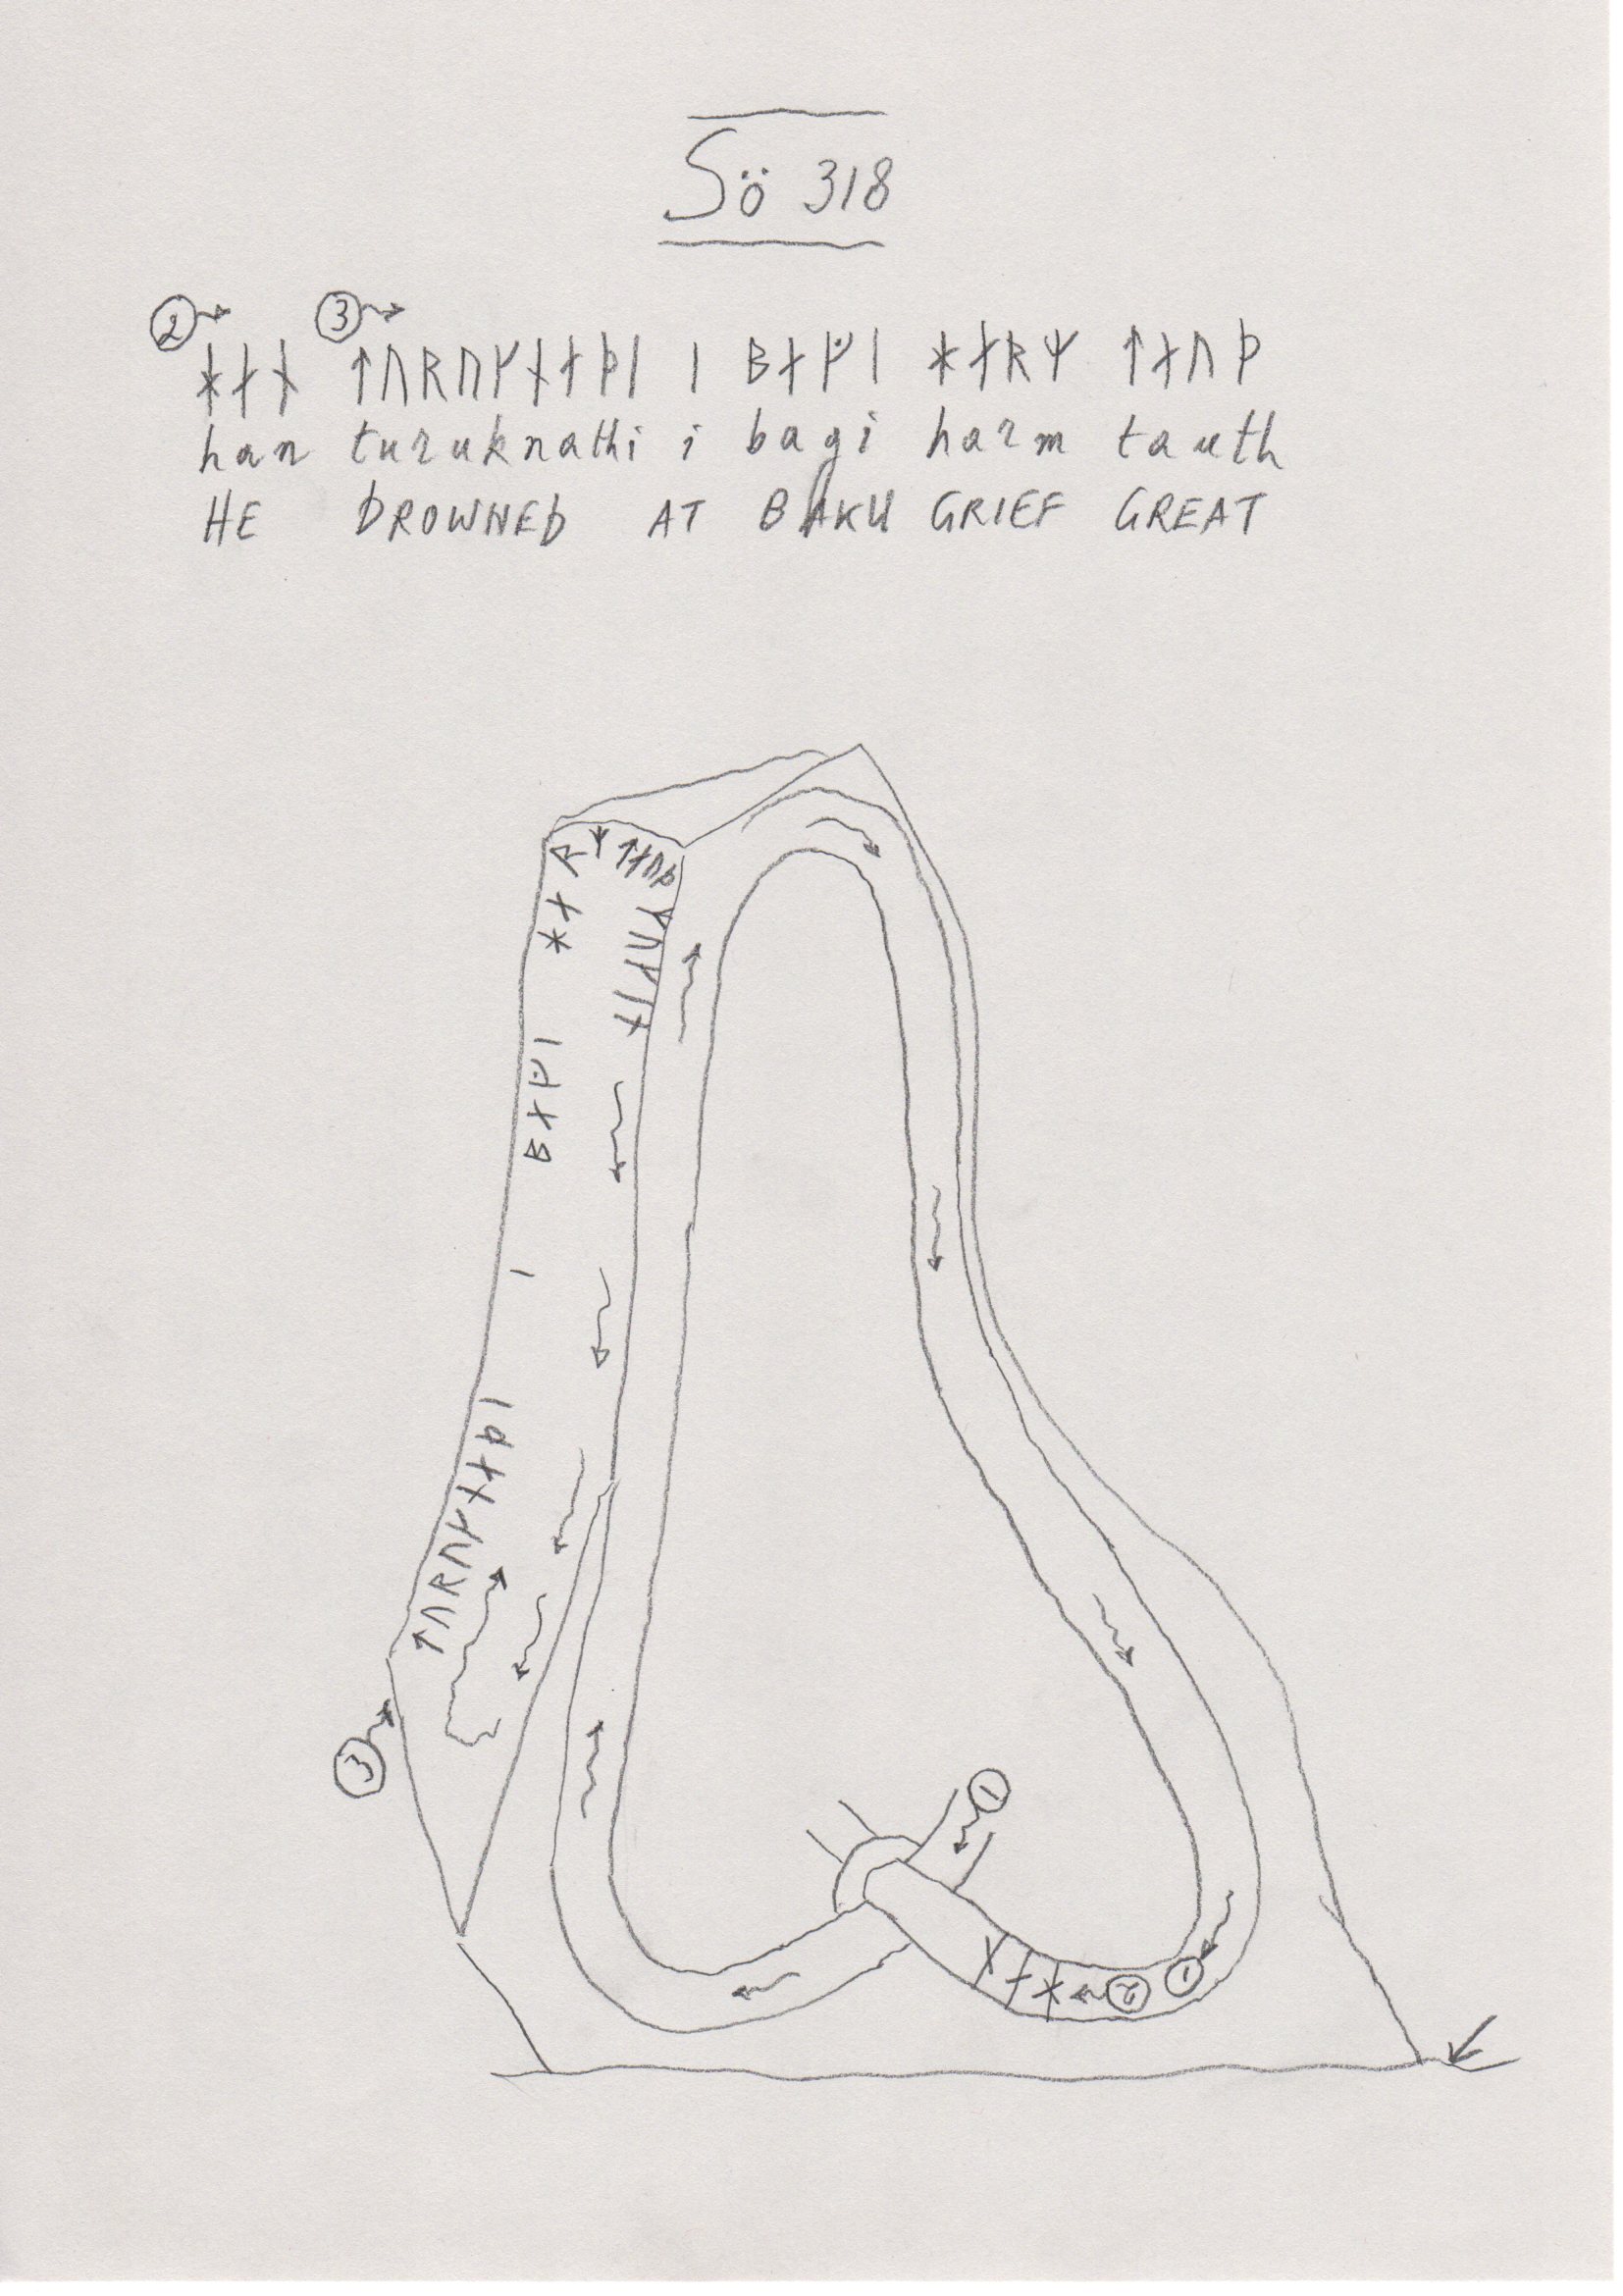 Sö 318
② ③
ᚼᛅᚾ ᛏᚢᚱᚢᚴᚾᛅᚦᛁ ᛁ ᛒᛅᚵᛁ ᚼᛅᚱᛘ ᛏᛅᚢᚦ
han turuknathi i bagi harm tauth
HE DROWNED AT BAKU GRIEF GREAT
ᚼᛅᚱᛘ ᛏᛅᚢᚦ
ᛒᛅᚵᛁ
ᛁ
ᛏᚢᚱᚢᚴᚾᛅᚦᛁ
③
①
② ①
ᚼᛅᚾ